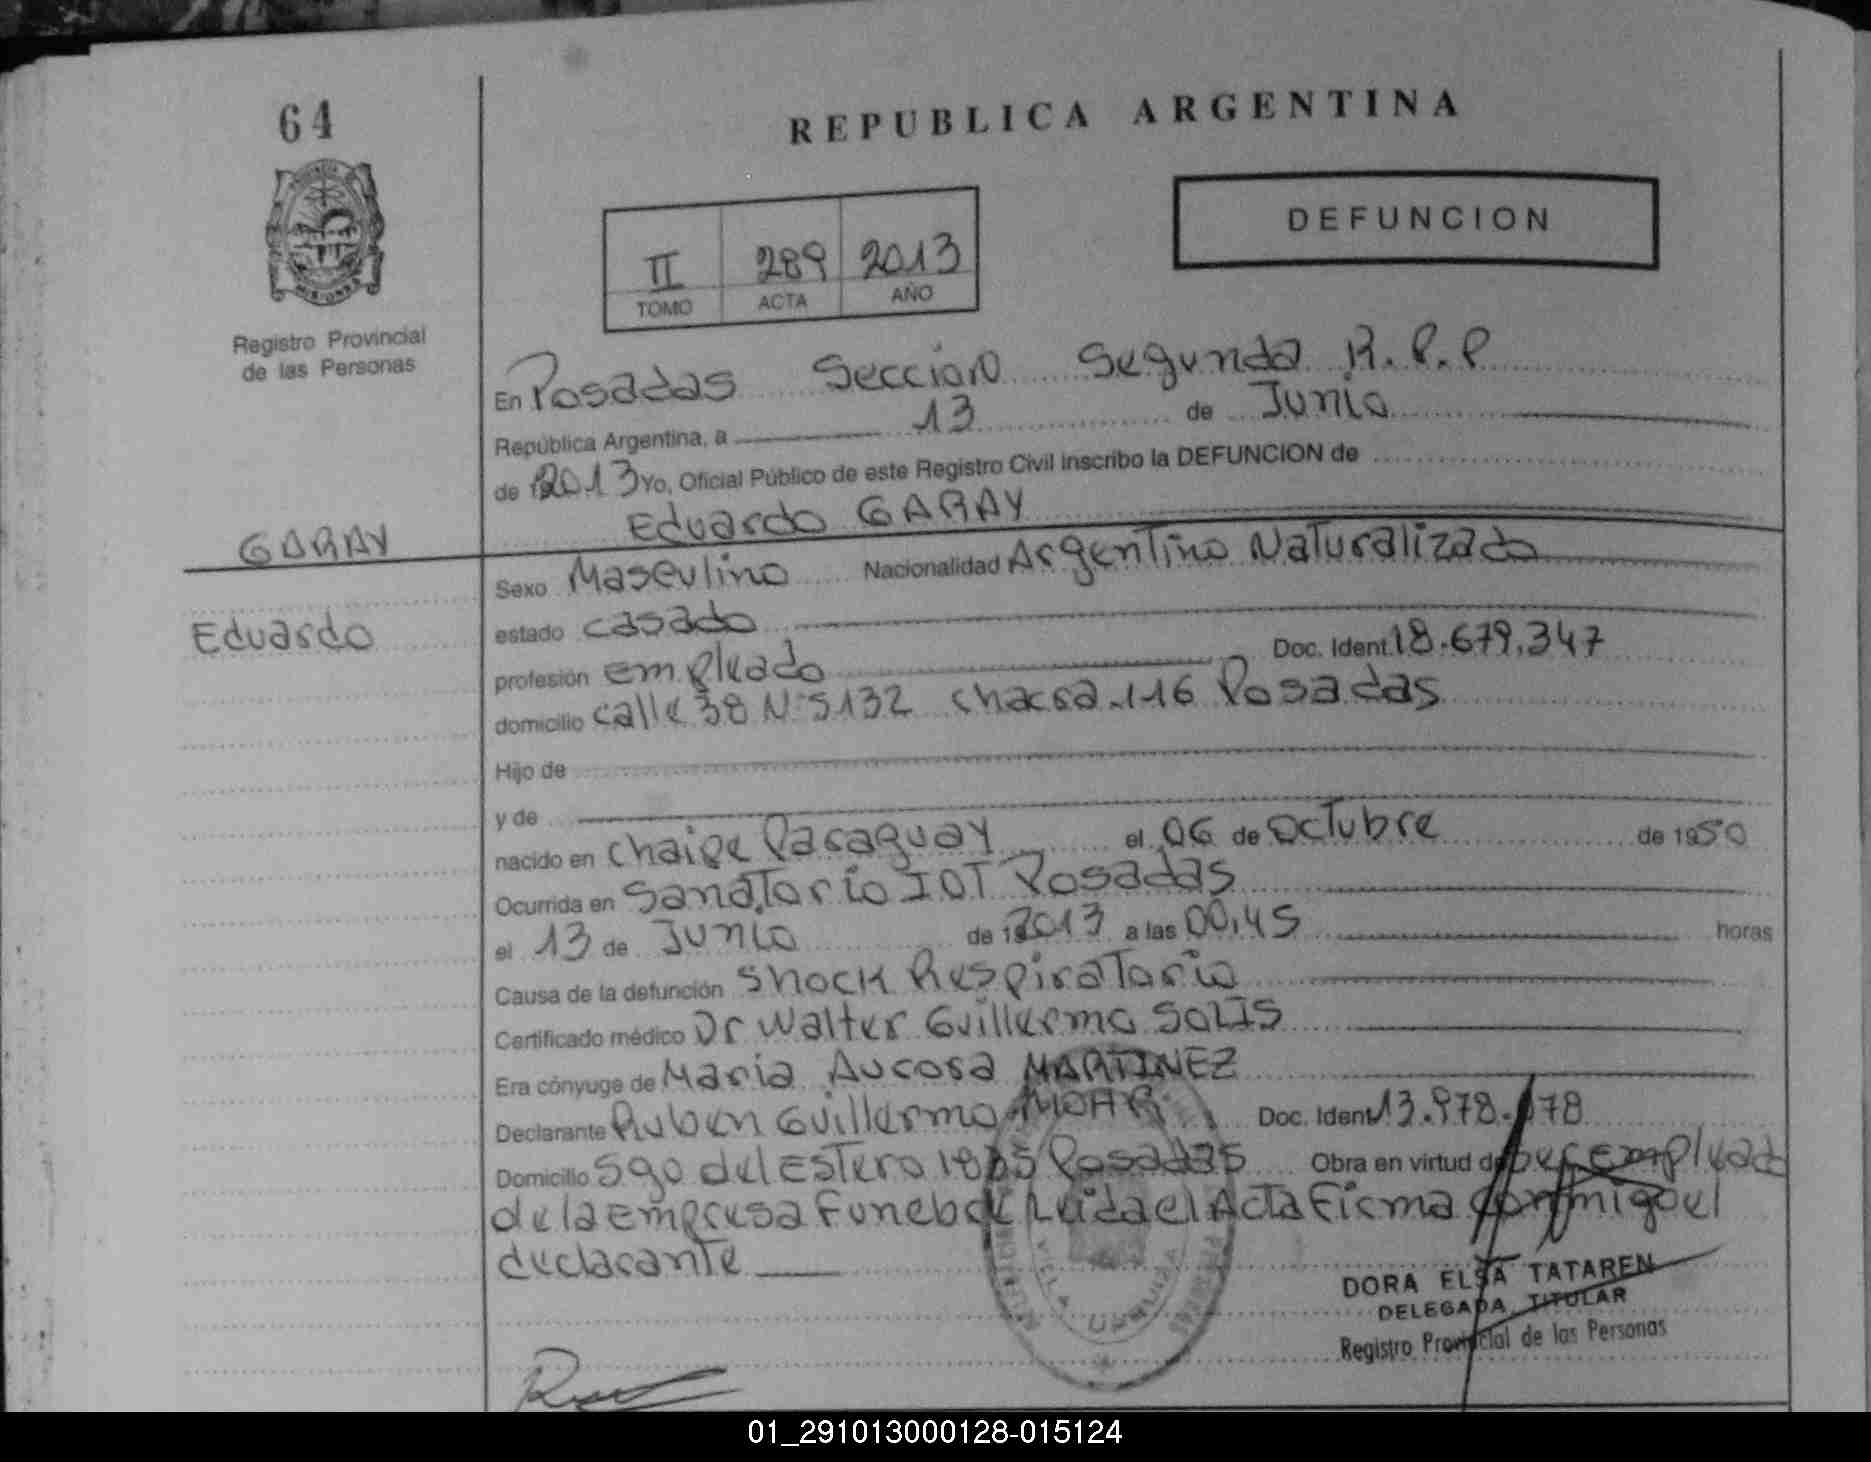 64
REPUBLICA ARGENTINA
DEFUNCION
II 289 2013
TOMO ACTA AÑO
Registro Provincial
de las Personas
En Posadas Sección Segunda R.P.P
República Argentina, a 13 de Junio
de 2013 Yo, Oficial Público de este Registro Civil inscribo la DEFUNCION de
Eduardo GARAY
GARAY
Eduardo
Sexo Masculino Nacionalidad Argentino Naturalizado
estado casado
profesión empleado Doc. Ident. 18.679.347
domicilio calle 38 N° 5132 chacra 116 Posadas
Hijo de
y de
nacido en Chaipe Paraguay el 06 de Octubre de 1950
Ocurrida en Sanatorio IOT Posadas
el 13 de Junio de 2013 a las 00,45 horas
Causa de la defunción Shock Respiratorio
Certificado médico Dr Walter Guillermo SOLIS
Era cónyuge de Maria Aurora MARTINEZ
Declarante Ruben Guillermo MOHR Doc. Ident 13.978.178
Domicilio Sgo del Estero Posadas Obra en virtud de ser emplead
de la empresa Funebre Leida el Acta Firma conmigo el
declarante
VILLA URQUIZA
DORA ELSA TATAREN
DELEGADA TITULAR
Registro Provincial de las Personas
01_291013000128-015124